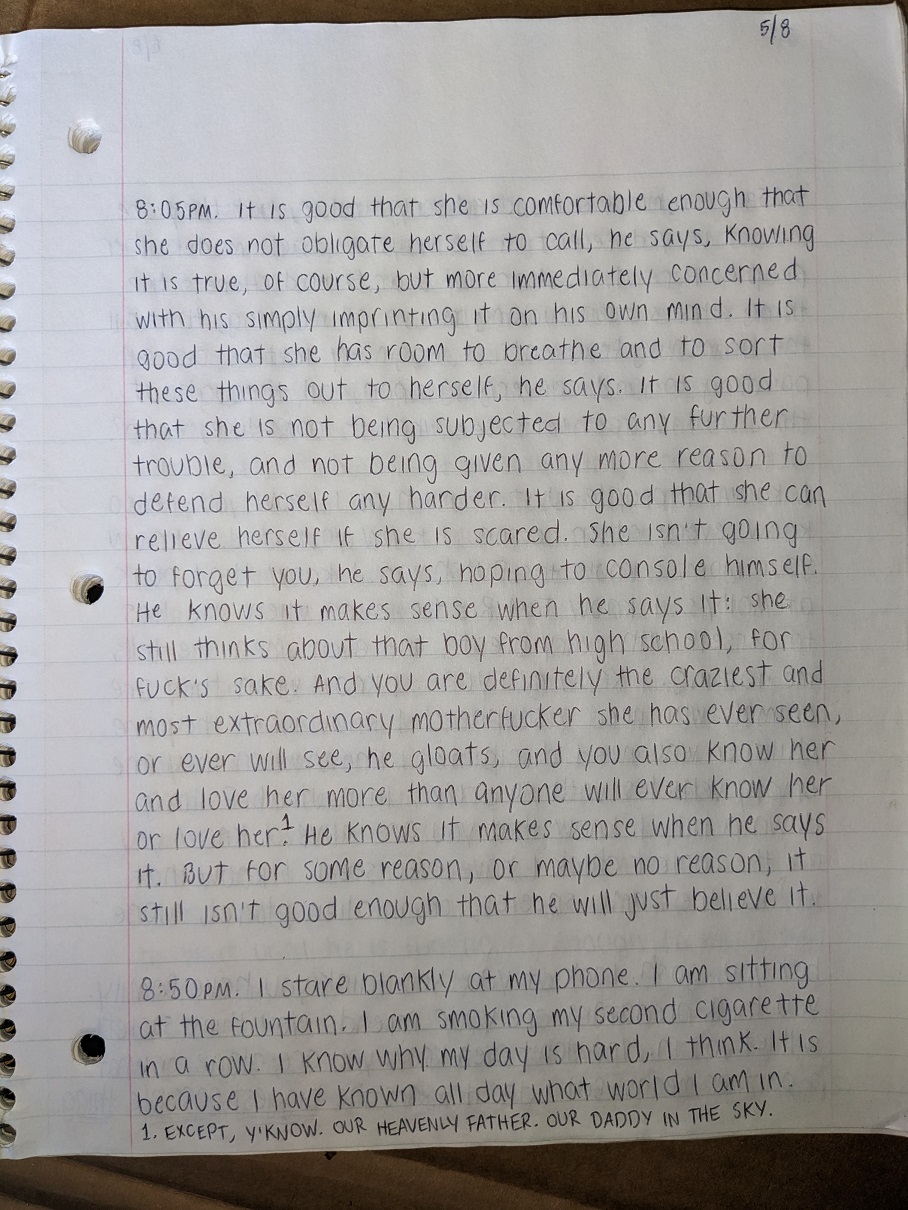 5/8
8:05PM. It is good that she is comfortable enough that
she does not obligate herself to call, he says, knowing
it is true, of course, but more immediately concerned
with his simply imprinting it on his own mind. It is
good that she has room to breathe and to sort
these things out to herself, he says. It is good
that she is not being subjected to any further
trouble, and not being given any more reason to
defend herself any harder. It is good that she can
relieve herself if she is scared. She isn't going
to forget you, he says, hoping to console himself.
He knows it makes sense when he says it: she
still thinks about that boy from high school, for
fuck's sake. And you are definitely the craziest and
most extraordinary motherfucker she has ever seen,
or ever will see, he gloats, and you also know her
and love her more than anyone will ever know her
or love her.¹ He knows it makes sense when he says
it. But for some reason, or maybe no reason, it
still isn't good enough that he will just believe it.
8:50PM. I stare blankly at my phone. I am sitting
at the fountain. I am smoking my second cigarette
in a row. I know why my day is hard, I think. It is
because I have known all day what world I am in.
1. EXCEPT, Y'KNOW. OUR HEAVENLY FATHER. OUR DADDY IN THE SKY.